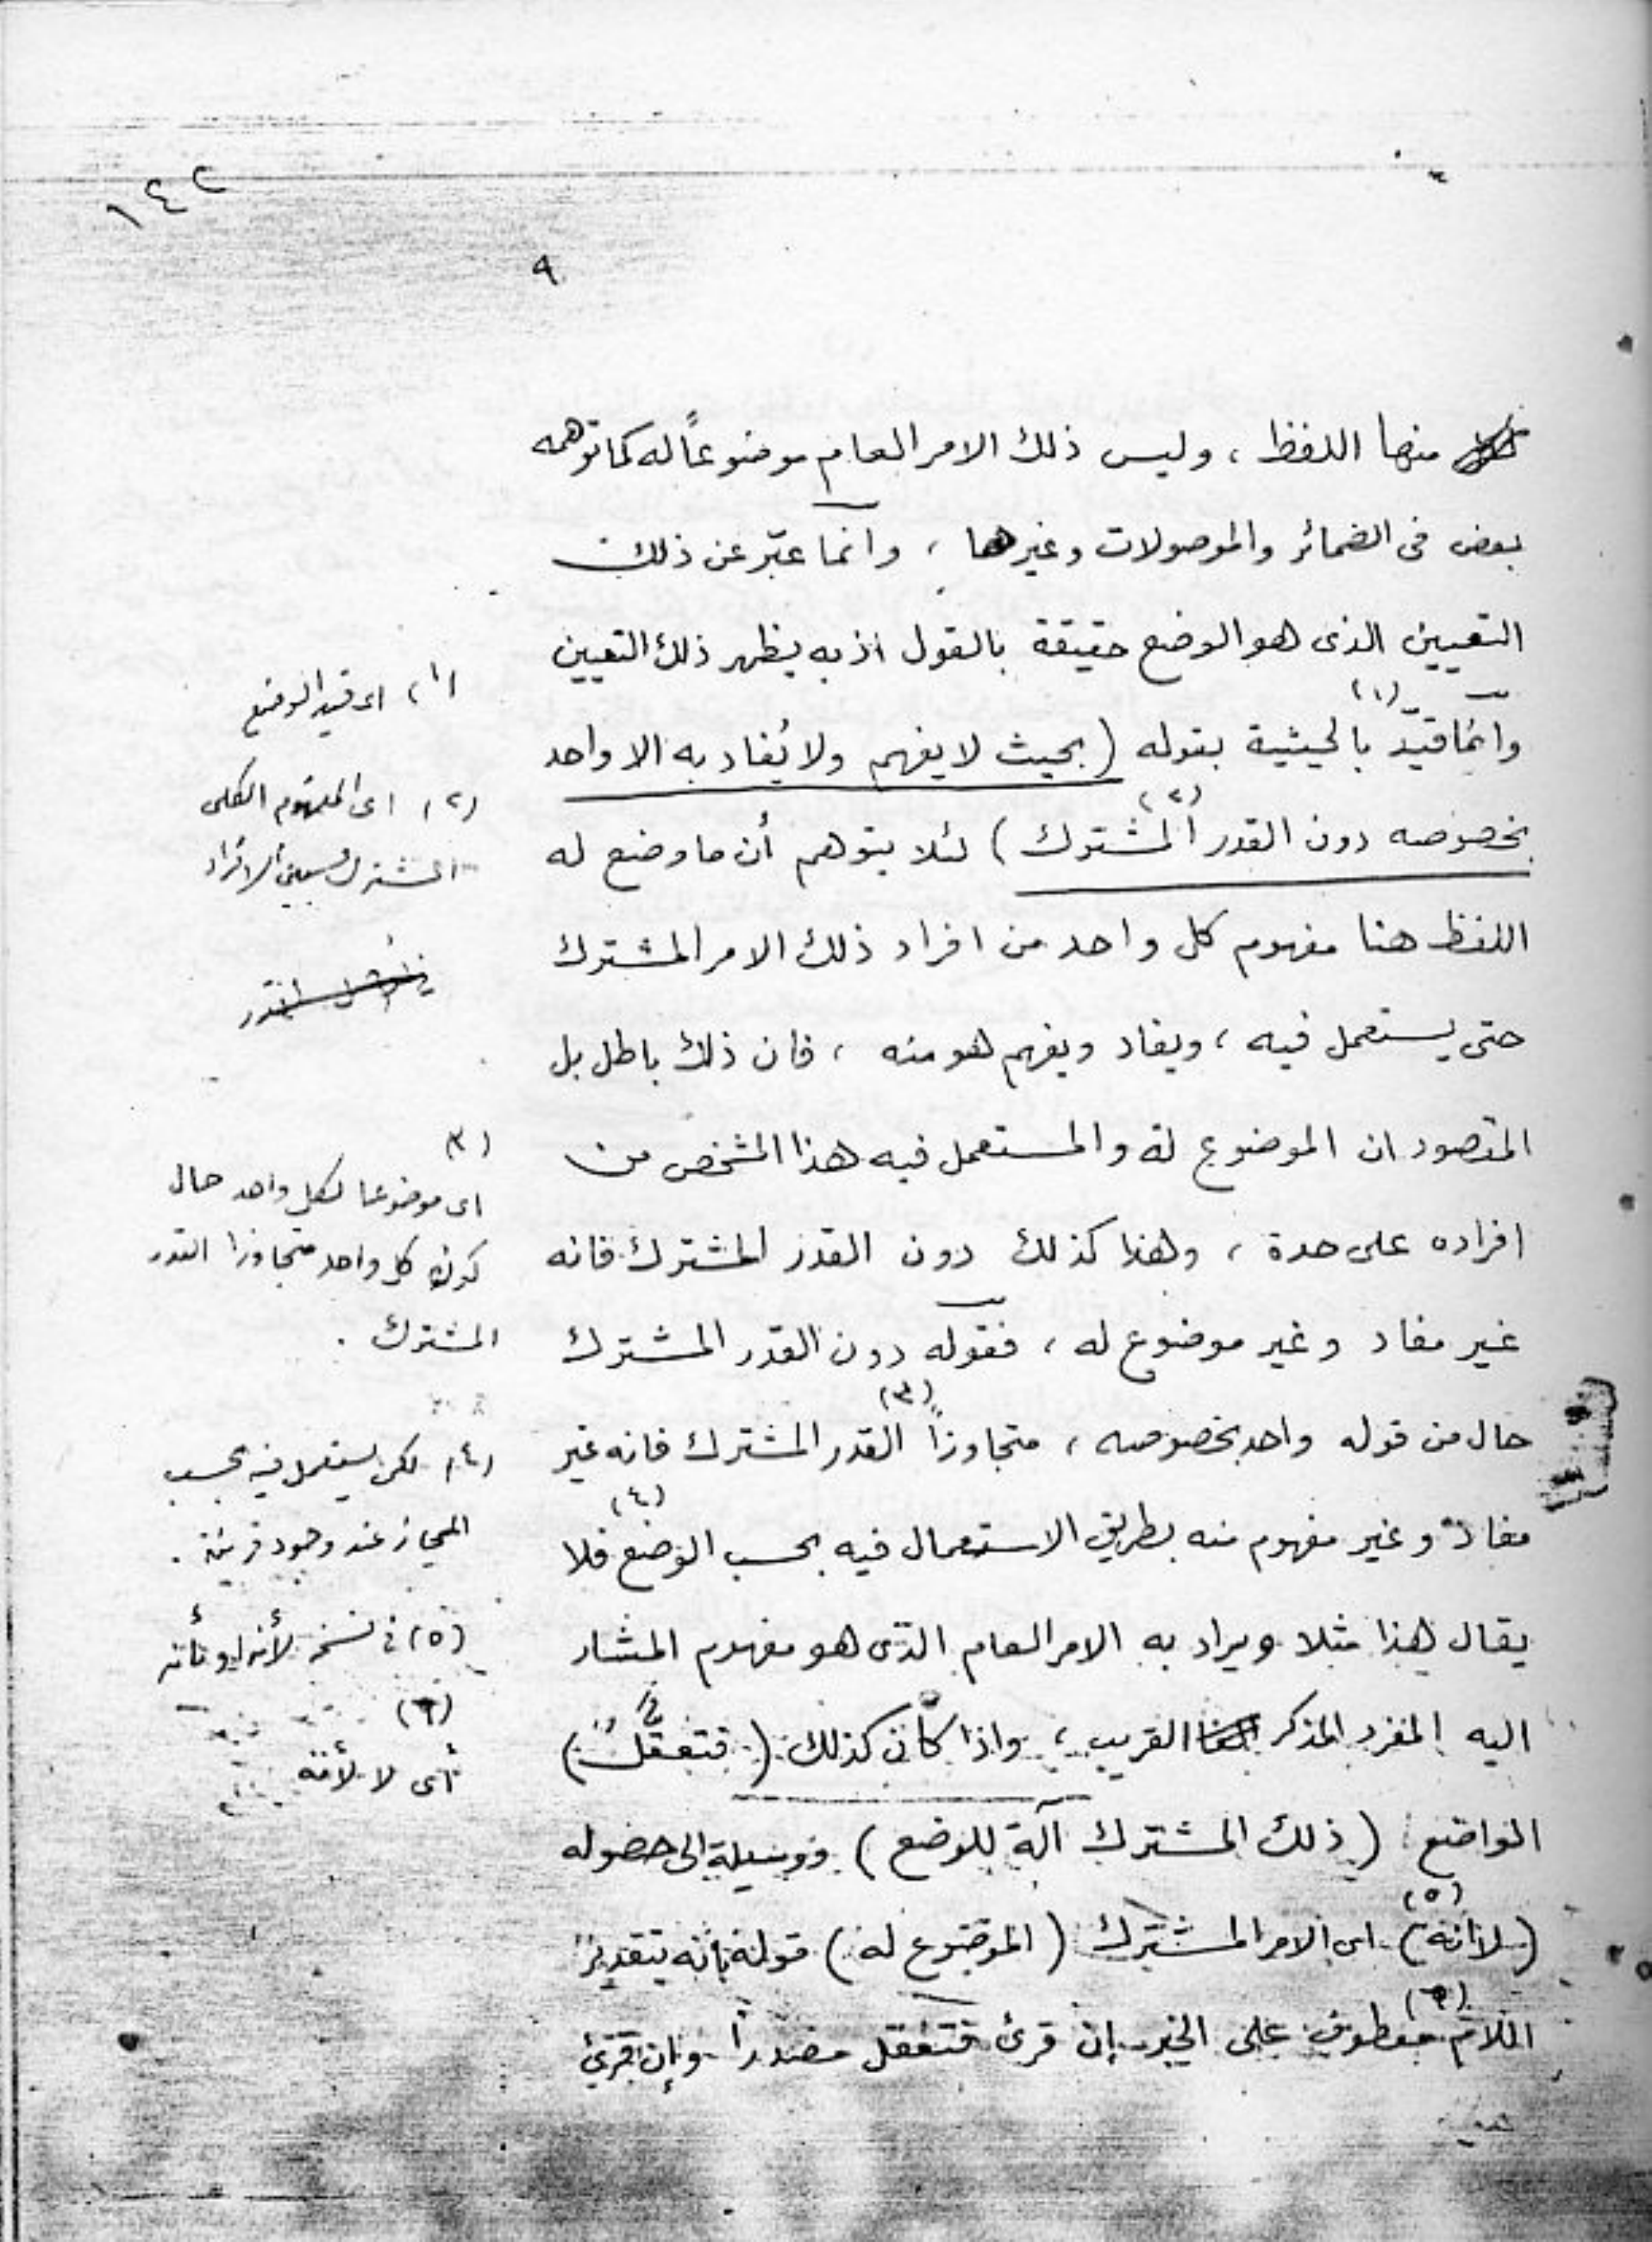 ١٤٢
٩
منها اللفظ ، وليس ذلك الامر العام موضوعاً له كما توهمه
بعض فى الضمائر والموصولات وغيرها ، وانما عبّر عن ذلك
التعيين الذى هو الوضع حقيقة بالقول اذ به يظهر ذلك التعيين
وانما قيّد (١) بالحيثية بقوله (بحيث لا يفهم ولا يُفاد به الا واحد
بخصوصه دون القدر المشترك (٢)) لئلا يتوهم أن ما وضع له
اللفظ هنا مفهوم كل واحد من افراد ذلك الامر المشترك
حتى يستعمل فيه ، ويفاد ويفهم هو منه ، فان ذلك باطل بل
المقصود ان الموضوع له والمستعمل فيه هذا المشخص من
افراده على حدة ، وهذا كذلك دون القدر المشترك فانه
غير مفاد وغير موضوع له ، فقوله دون القدر المشترك
حال من قوله واحد بخصوصه ، متجاوزاً (٣) القدر المشترك فانه غير
مفاد وغير مفهوم منه بطريق الاستعمال فيه بحسب الوضع (٤) فلا
يقال هذا مثلا ويراد به الامر العام الذى هو مفهوم المشار
اليه المفرد المذكر القريب ، واذا كان كذلك (فتعقّلُ)
الواضع (ذلك المشترك آلة للوضع) ووسيلة الى حصوله
(لا انه) (٥) اى الامر المشترك (الموضوع له) قوله بانه بتقدير
اللام (٦) معطوف على الخبر إن قرئ فتعقل مصدراً وإن قرئ
(١) اى قيد الوضع
(٢) اى المفهوم الكلى
المشترك بين الافراد
(٣)
اى موضوعا لكل واحد حال
كون كل واحد متجاوزا القدر
المشترك .
(٤) لكن يستعمل فيه بحسب
المجاز عند وجود قرينة .
(٥) فى نسخة لأنه
(٦)
أى لا لأنه